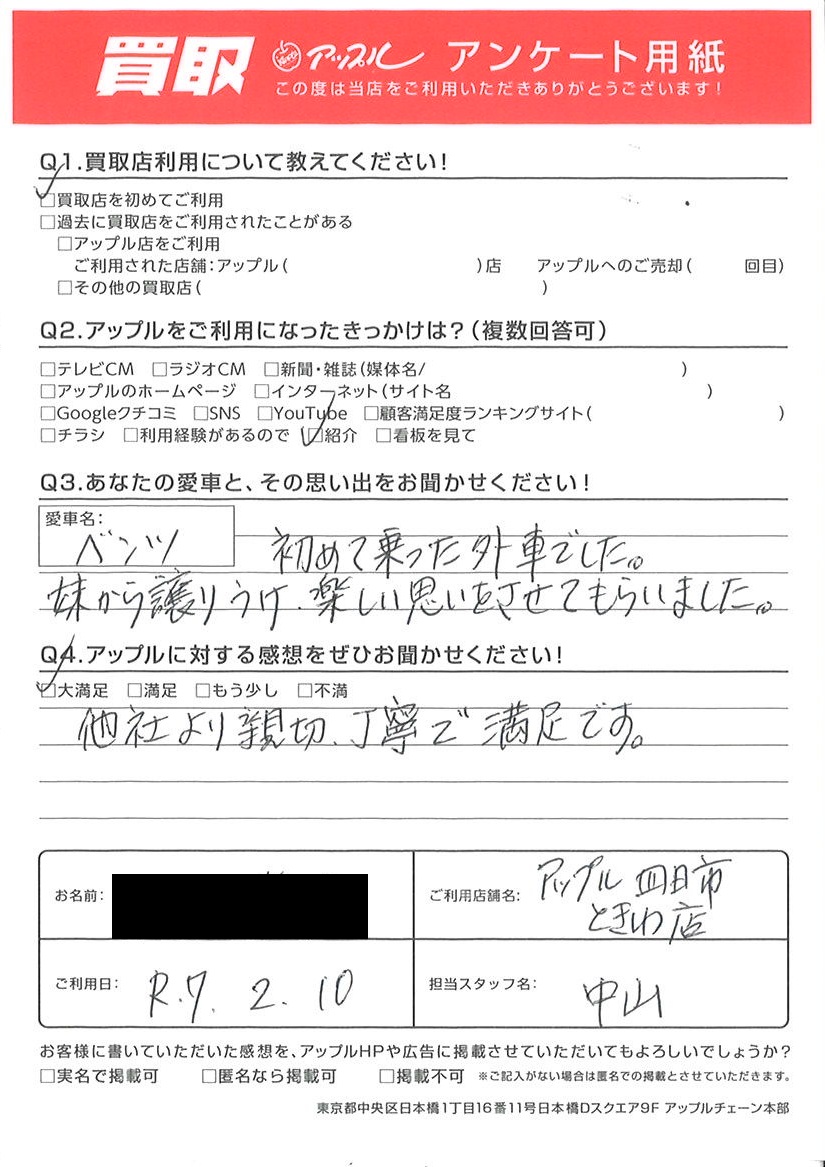 買取 アップル アンケート用紙
この度は当店をご利用いただきありがとうございます!
Q1.買取店利用について教えてください!
□買取店を初めてご利用
□過去に買取店をご利用されたことがある
□アップル店をご利用
ご利用された店舗:アップル( )店 アップルへのご売却( 回目)
□その他の買取店( )
Q2.アップルをご利用になったきっかけは?(複数回答可)
□テレビCM □ラジオCM □新聞・雑誌(媒体名/ )
□アップルのホームページ □インターネット(サイト名 )
□Googleクチコミ □SNS □YouTube □顧客満足度ランキングサイト( )
□チラシ □利用経験があるので □紹介 □看板を見て
Q3.あなたの愛車と、その思い出をお聞かせください!
愛車名:
ベンツ 初めて乗った外車でした。
妹から譲りうけ、楽しい思いをさせてもらいました。
Q4.アップルに対する感想をぜひお聞かせください!
□大満足 □満足 □もう少し □不満
他社より親切、丁寧で満足です。
お名前: ご利用店舗名: アップル 四日市
ときわ店
ご利用日: R.7. 2. 10 担当スタッフ名: 中山
お客様に書いていただいた感想を、アップルHPや広告に掲載させていただいてもよろしいでしょうか?
□実名で掲載可 □匿名なら掲載可 □掲載不可 ※ご記入がない場合は匿名での掲載とさせていただきます。
東京都中央区日本橋1丁目16番11号日本橋Dスクエア9F アップルチェーン本部